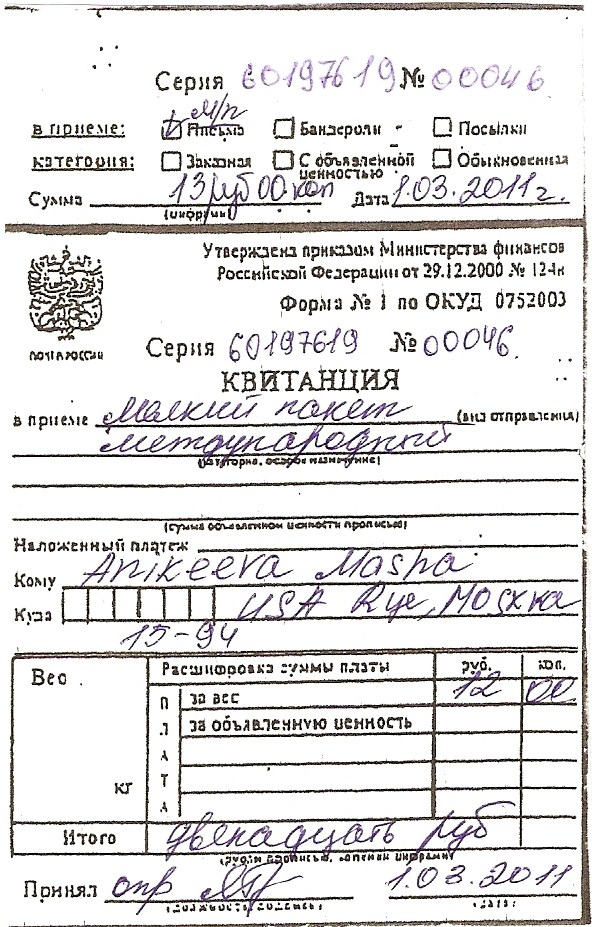 Серия 60197619 № 00046
м/п
в приеме: Письма Бандероли Посылки
категория: Заказная С объявленной ценностью Обыкновенная
Сумма 13 руб 00 коп Дата 1.03.2011 г.
(цифрами)
Утверждена приказом Министерства финансов
Российской Федерации от 29.12.2000 № 124н
Форма № 1 по ОКУД 0752003
ПОЧТА РОССИИ
Серия 60197619 № 00046
КВИТАНЦИЯ
в приеме Мелкий пакет (вид отправления)
международный
(категория, особое назначение)
(сумма объявленной ценности прописью)
Наложенный платеж
Кому Anikeeva Masha
Куда USA Rye, Москва
15-94
Вес Расшифровка суммы платы руб. коп.
за вес 12 00
за объявленную ценность
ПЛАТА
кг
Итого двенадцать руб
(рубли прописью, копейки цифрами)
Принял опр 1.03.2011
(должность, подпись) (дата)